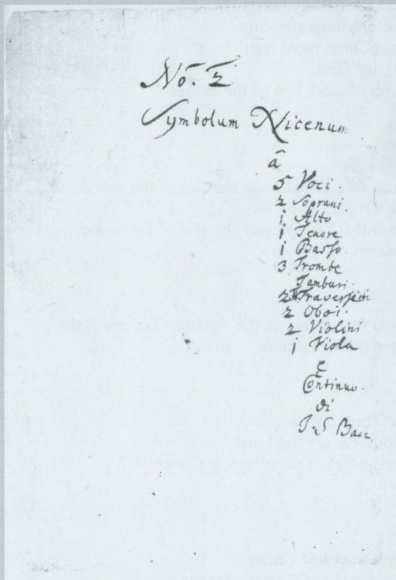 No. 2
Symbolum Nicenum
à
5 Voci.
2 Soprani.
1 Alto
1 Tenore
1 Basso.
3 Trombe
Tamburi.
2 Traversieri
2 Oboi.
2 Violini
1 Viola
e
Continuo.
di
J. S. Bach